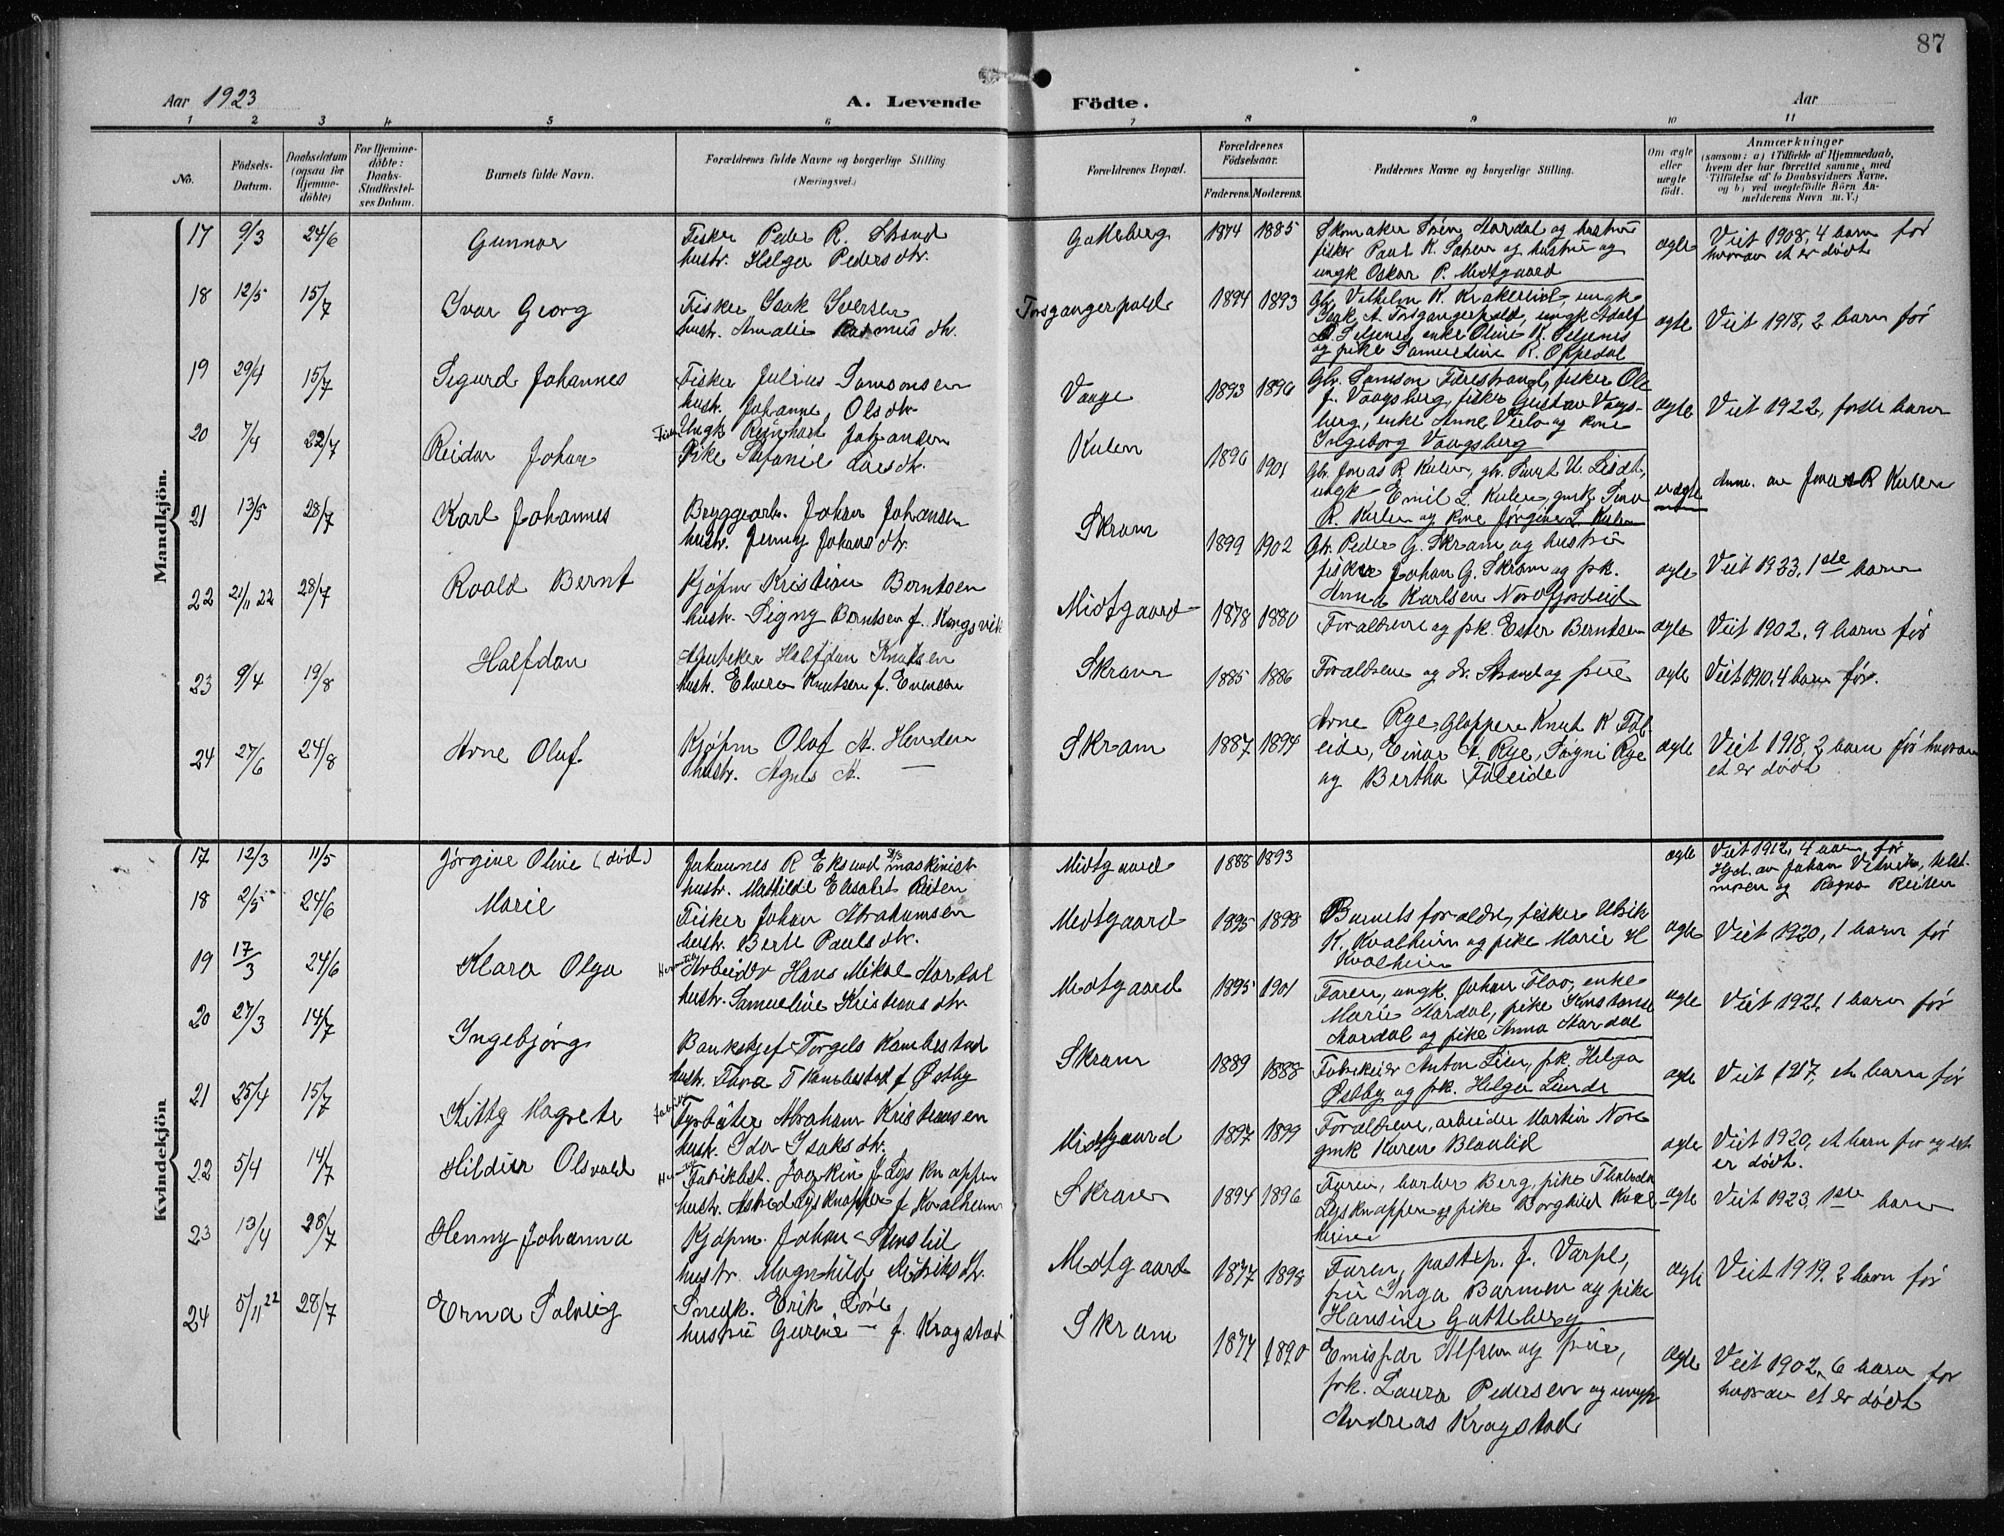 87
Aar 1923
A. Levende Födte.
Aar
1 2 3 4 5 6 7 8 9 10 11
No.
Födsels-Datum.
Daabsdatum (ogsaa for Hjemme-döbte)
For Hjemme-döbte: Daabs-Stadfæstel-ses Datum.
Barnets fulde Navn.
Forældrenes fulde Navne og borgerlige Stilling. (Næringsvei.)
Forældrenes Bopæl.
Forældrenes Födselsaar.
Faderens. Moderens.
Faddernes Navne og borgerlige Stilling.
Om ægte eller uægte født.
Anmærkninger
(saasom: a) i Tilfælde af Hjemmedaab, hvem der har forrettet samme, med Tilföielse af to Daabsvidners Navne, og b) ved uægtefödte Börn An-melderens Navn m. V.)
Mandkjön.
17 9/3 24/6 Gunnar
Fisker Peder R.
hustr. Helga Pedersdtr.
Gatteberg 1874 1885
Skomaker Hardal og hustru
fisker Paul K. og hustru og
ungk Oskar P. Midtgaard
ægte
Viet 1908, 4 barn før
hvorav et er dødt
18 12/5 15/7 Ivar Georg
Fisker Isak Iversen
hustr. Amalie Rasmusdtr.
1894 1893
Gbr. Vilhelm K. ungk
Isak A. ungk Adolf
enke Oline K.
og pike Samueline R. Oppedal
ægte
Viet 1918, 2 barn før
19 29/4 15/7 Sigurd Johannes
Fisker Julius Samsonsen
hustr. Johanne Olsdtr.
Vaage 1893 1896
Gbr. Samson Færestrand, fisker Ole
J. Vaagsberg, fisker Gustav Vaags-
berg, enke Anne og kone
Ingeborg Vaagsberg
ægte
Viet 1922, første barn
20 7/4 22/7 Reidar Johan
Fisker Ungk Reinhart
Pike Larsdtr.
Kulen 1896 1901
Gbr. Jonas R Kulen, gbr.
ungk Emil L. Kulen, gmk
R. Kulen og kone Jørgine L. Kulen
uægte
Anm. av Jonas R Kulen
21 13/5 28/7 Karl Johannes
Bryggearb. Johan Johansen
hustr. Jenny Johansdtr.
Skram 1899 1902
Gbr. Peder G. Skram og hustru
fisker Johan G. Skram og frk.
Anna Karlsen Nordfjordeid
ægte
Viet 1933. 1ste barn
22 21/11 22 28/7 Roald Bernt
Kjøpm Kristian Berntsen
hustr. Signy Berntsen f. Kongsvik
Midtgaard 1878 1880
Forældrene og frk. Ester Berntsen
ægte
Viet 1902. 9 barn før
23 9/4 19/8 Halfdan
Apoteker Halfdan Knutsen
hustr. Knutsen f. Evensen
Skram 1885 1886
Forældrene og dr. Strand og frue
ægte
Viet 1910. 4 barn før.
24 27/6 24/8 Arne Oluf
Kjøpm Olaf A. Henden
hustr. Agnes A. —
Skram 1887 1894
Arne Rye, Gloppen Knut K
Einar A. Rye, Rye
og Bertha Føleide
ægte
Viet 1918, 2 barn før hvorav
et er dødt
Kvindekjön
17 12/3 11/5 Jørgine Oline (død)
Johannes R Eksund maskinist
hustr. Mathilde Elisabet Reiten
Midtgaard 1888 1893
ægte
Viet 1912, 4 barn før
Hjd. av Johan
og Ragna Reiten
18 2/5 24/6 Marie
Fisker Johan Abrahamsen
hustr. Berte Paulsdtr.
Midtgaard 1895 1898
Barnets forældre, fisker Ulrik
K. Kvalheim og pike Marie H
Kvalheim
ægte
Viet 1920, 1 barn før
19 17/3 24/6 Klara Olga
Arbeider Hans Mikal Hardal
hustr. Samueline Kristiansdtr.
Midtgaard 1895 1901
Faren, ungk. Johan Floo, enke
Marie Aardal, pike Konstanse
Aardal og pike Anna Aardal
ægte
Viet 1921, 1 barn før
20 27/3 14/7 Ingebjørg
Banksjef Torgils Kambestad
hustr. Thora T Kambestad f Østby
Skram 1889 1888
Fabrikeier Anton Lien, frk. Helga
Østby og frk. Helga Lunde
ægte
Viet 1917, et barn før
21 25/4 15/7 Kitty Magrete
Fyrbøter Abraham Kristiansen
hustr. Ida Isaksdtr.
Midtgaard 1897 1899
Forældrene, arbeider Martin Nore
gmk Karen Blaalid
ægte
Viet 1920, et barn før og det
er dødt.
22 5/4 14/7 Hildur Olsvold
Fabrikbest. Lysknappen
hustr. Astrid Lysknappen f Kvalheim
Skram 1894 1896
Faren, barber Berg, pike
Lysknappen og pike Borghild Kval-
heim
ægte
Viet 1923, 1ste barn
23 13/4 28/7 Henny Johanna
Kjøpm. Johan Stenslid
hustr. Magnhild Didriksdtr.
Midtgaard 1877 1898
Faren, postexp. J. Varpe,
frue Inga Barmen og pike
Hansine Gatteberg
ægte
Viet 1919. 2 barn før
24 5/11 22 28/7 Erna Solveig
Snedk. Erik Løre
hustru Gurine — f. Kragstad
Skram 1877 1890
Alfsen og frue,
frk. Laura Pedersen og ungk
Andreas Kragstad
ægte
Viet 1902, 6 barn før
hvorav et er dødt